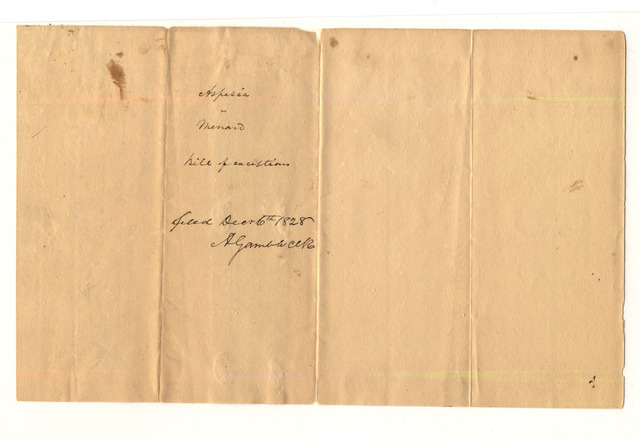 Aspisia
vs
Menard
Bill of exceptions
filed Decr 6th 1828
A Gamble Clk